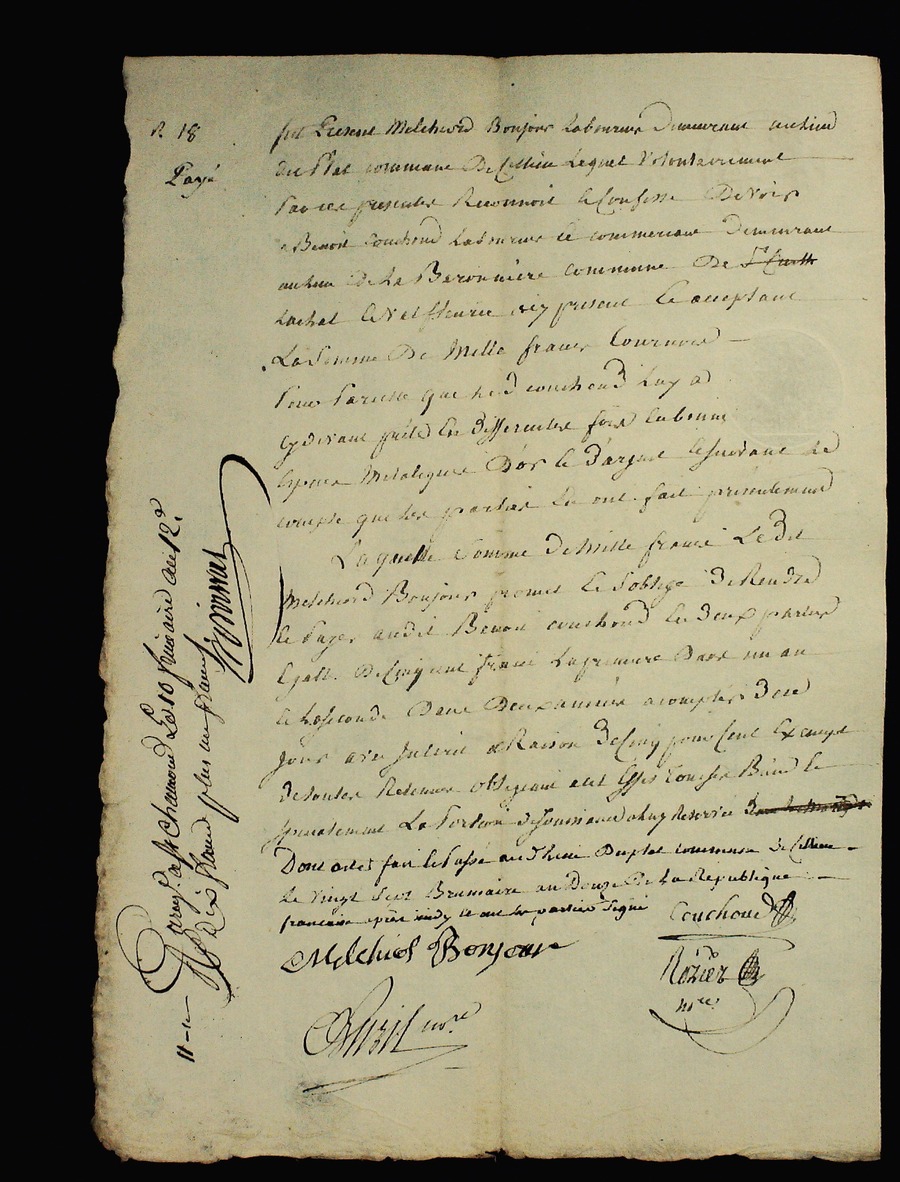 n. 18
Payé
fut Present Melchiord Bonjour Laboureur Demeurant au lieu
du Plat commune De Cellieu Lequel Volontairement
Par ces presentes Reconnoit & Confesse Devoir
a Benoit Couchoud Laboureur et commercant Demeurant
au lieu de La Baronnière commune De St
Lachal & Valfleurie icy present & acceptant
La Somme De Mille francs tournois
Pour Pareille que led couchoud Luy a
cydevant prété En differentes fois En bonne
Espece Metalique D'or & D'argent & Suivant Le
compte que les parties En ont fait presentement
Laquelle Somme De Mille francs Le Dit
Melchiord Bonjour promet & S'oblige De Rendre
& Payer audit Benoit couchoud En Deux parties
Egalle De Cinq cent francs La premiere Dans un an
& La Seconde Dans Deux années a compter De ce
jour avec Interet a Raison De Cinq pour Cent Exempt
De toutes Retenues obligeant a cet Effet tous ses Biens &
Specialement La Portion De
Dont acte fait & Passé au Lieu Du plat commune De Cellieu
Le Vingt Sept Brumaire an Douze De La République
francaise après midy & ont les parties Signé
Couchoud
Melchior Bonjour
Rozier
nre
nre
Enregt. a St Chamond Le 10 frimaire an 12.
Reçu Dix francs plus un franc
11 - "